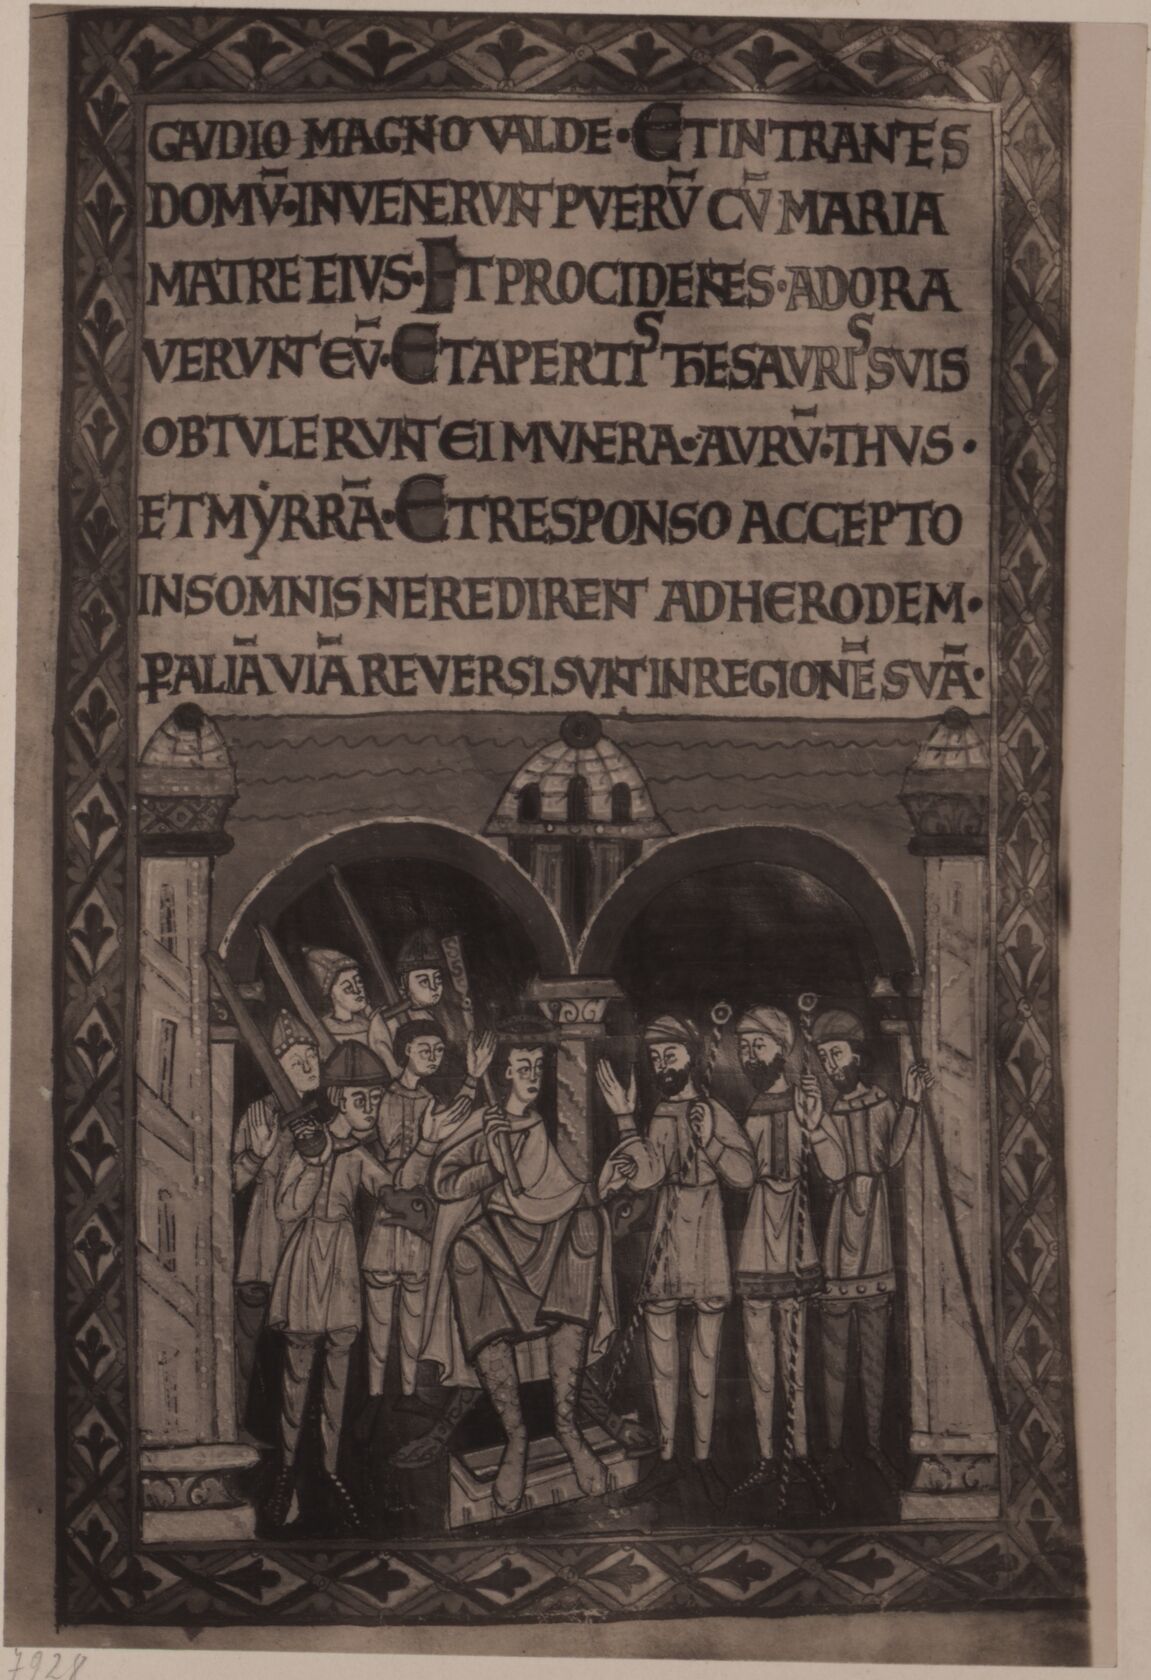 GAVDIO MAGNO VALDE · ET INTRANTES
DOMV̄ · INVENERVNT PVERV̄ CV̄ MARIA
MATRE EIVS · ET PROCIDENTES · ADORA
VERVNT EV̄ · ET APERTIS THESAVRIS SVIS
OBTVLERVNT EI MVNERA · AVRV̄ · THVS ·
ET MẎRRĀ · ET RESPONSO ACCEPTO
IN SOMNIS NE REDIRENT AD HERODEM ·
ꝐALIĀ VIĀ REVERSI SVNT IN REGIONĒ SVĀ ·
7928